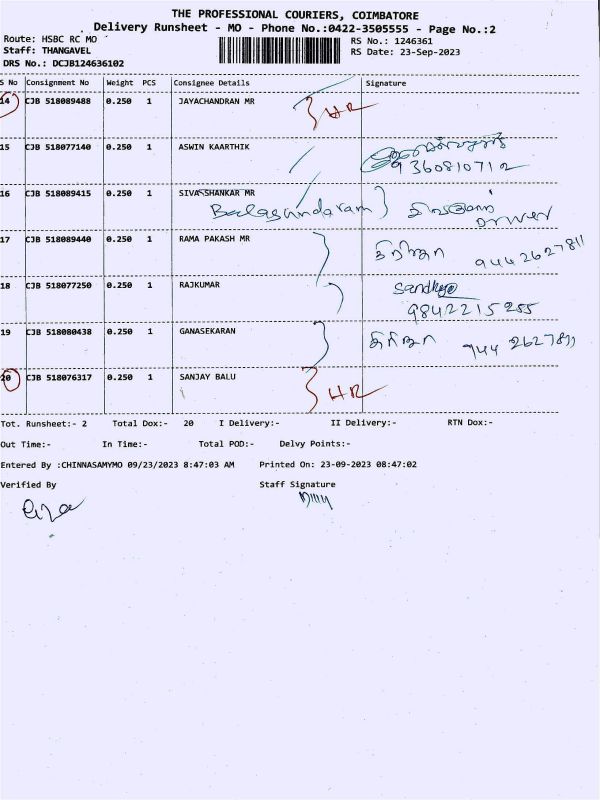 THE PROFESSIONAL COURIERS, COIMBATORE
Delivery Runsheet - MO - Phone No.:0422-3505555 - Page No.:2
Route: HSBC RC MO
RS No.: 1246361
Staff: THANGAVEL
RS Date: 23-Sep-2023
DRS No.: DCJB124636102
S No Consignment No Weight PCS Consignee Details Signature
14 CJB 518089488 0.250 1 JAYACHANDRAN MR HR
15 CJB 518077140 0.250 1 ASWIN KAARTHIK
9360810712
16 CJB 518089415 0.250 1 SIVA SHANKAR MR
Balasundaram Driver
17 CJB 518089440 0.250 1 RAMA PAKASH MR
கிரிஜா 9442627811
18 CJB 518077250 0.250 1 RAJKUMAR Sandhya
9842215255
19 CJB 518080438 0.250 1 GANASEKARAN
கிரிஜா 944 2627811
20 CJB 518076317 0.250 1 SANJAY BALU HR
Tot. Runsheet:- 2 Total Dox:- 20 I Delivery:- II Delivery:- RTN Dox:-
Out Time:- In Time:- Total POD:- Delvy Points:-
Entered By :CHINNASAMYMO 09/23/2023 8:47:03 AM Printed On: 23-09-2023 08:47:02
Verified By Staff Signature